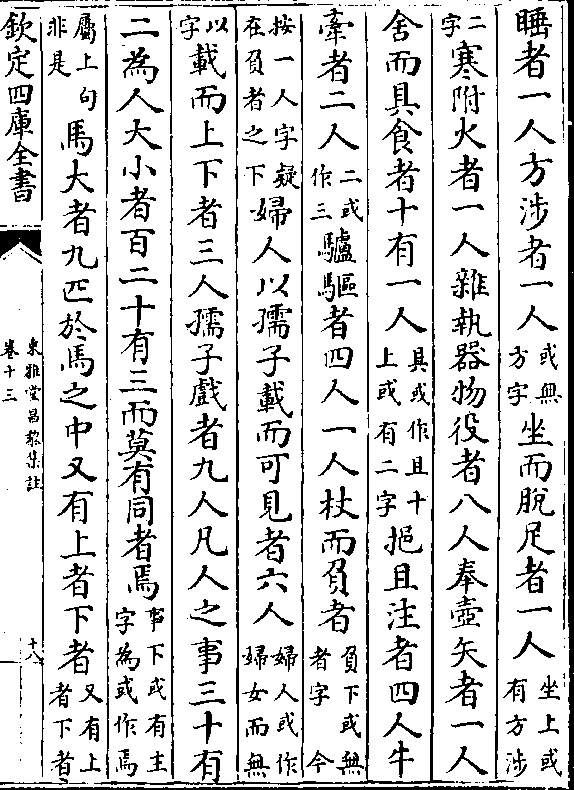 睡者一人方涉者一人或無方字坐而脫足者一人坐上或有方涉
二字寒附火者一人雜執器物役者八人奉壺矢者一人
舍而具食者十有一人具或作且十上或有二字挹且注者四人牛
牽者二人二或作三驢驅者四人一人杖而負者負下或無者字 今
按一人字疑在負者之下婦人以孺子載而可見者六人婦人或作婦女而無
以字載而上下者三人孺子戲者九人凡人之事三十有
二為人大小者百二十有三而莫有同者焉事下或有主字為或作焉
屬上句非是馬大者九匹於馬之中又有上者下者又有上者下者
欽定四庫全書
東雅堂昌黎集註
卷十三
十八